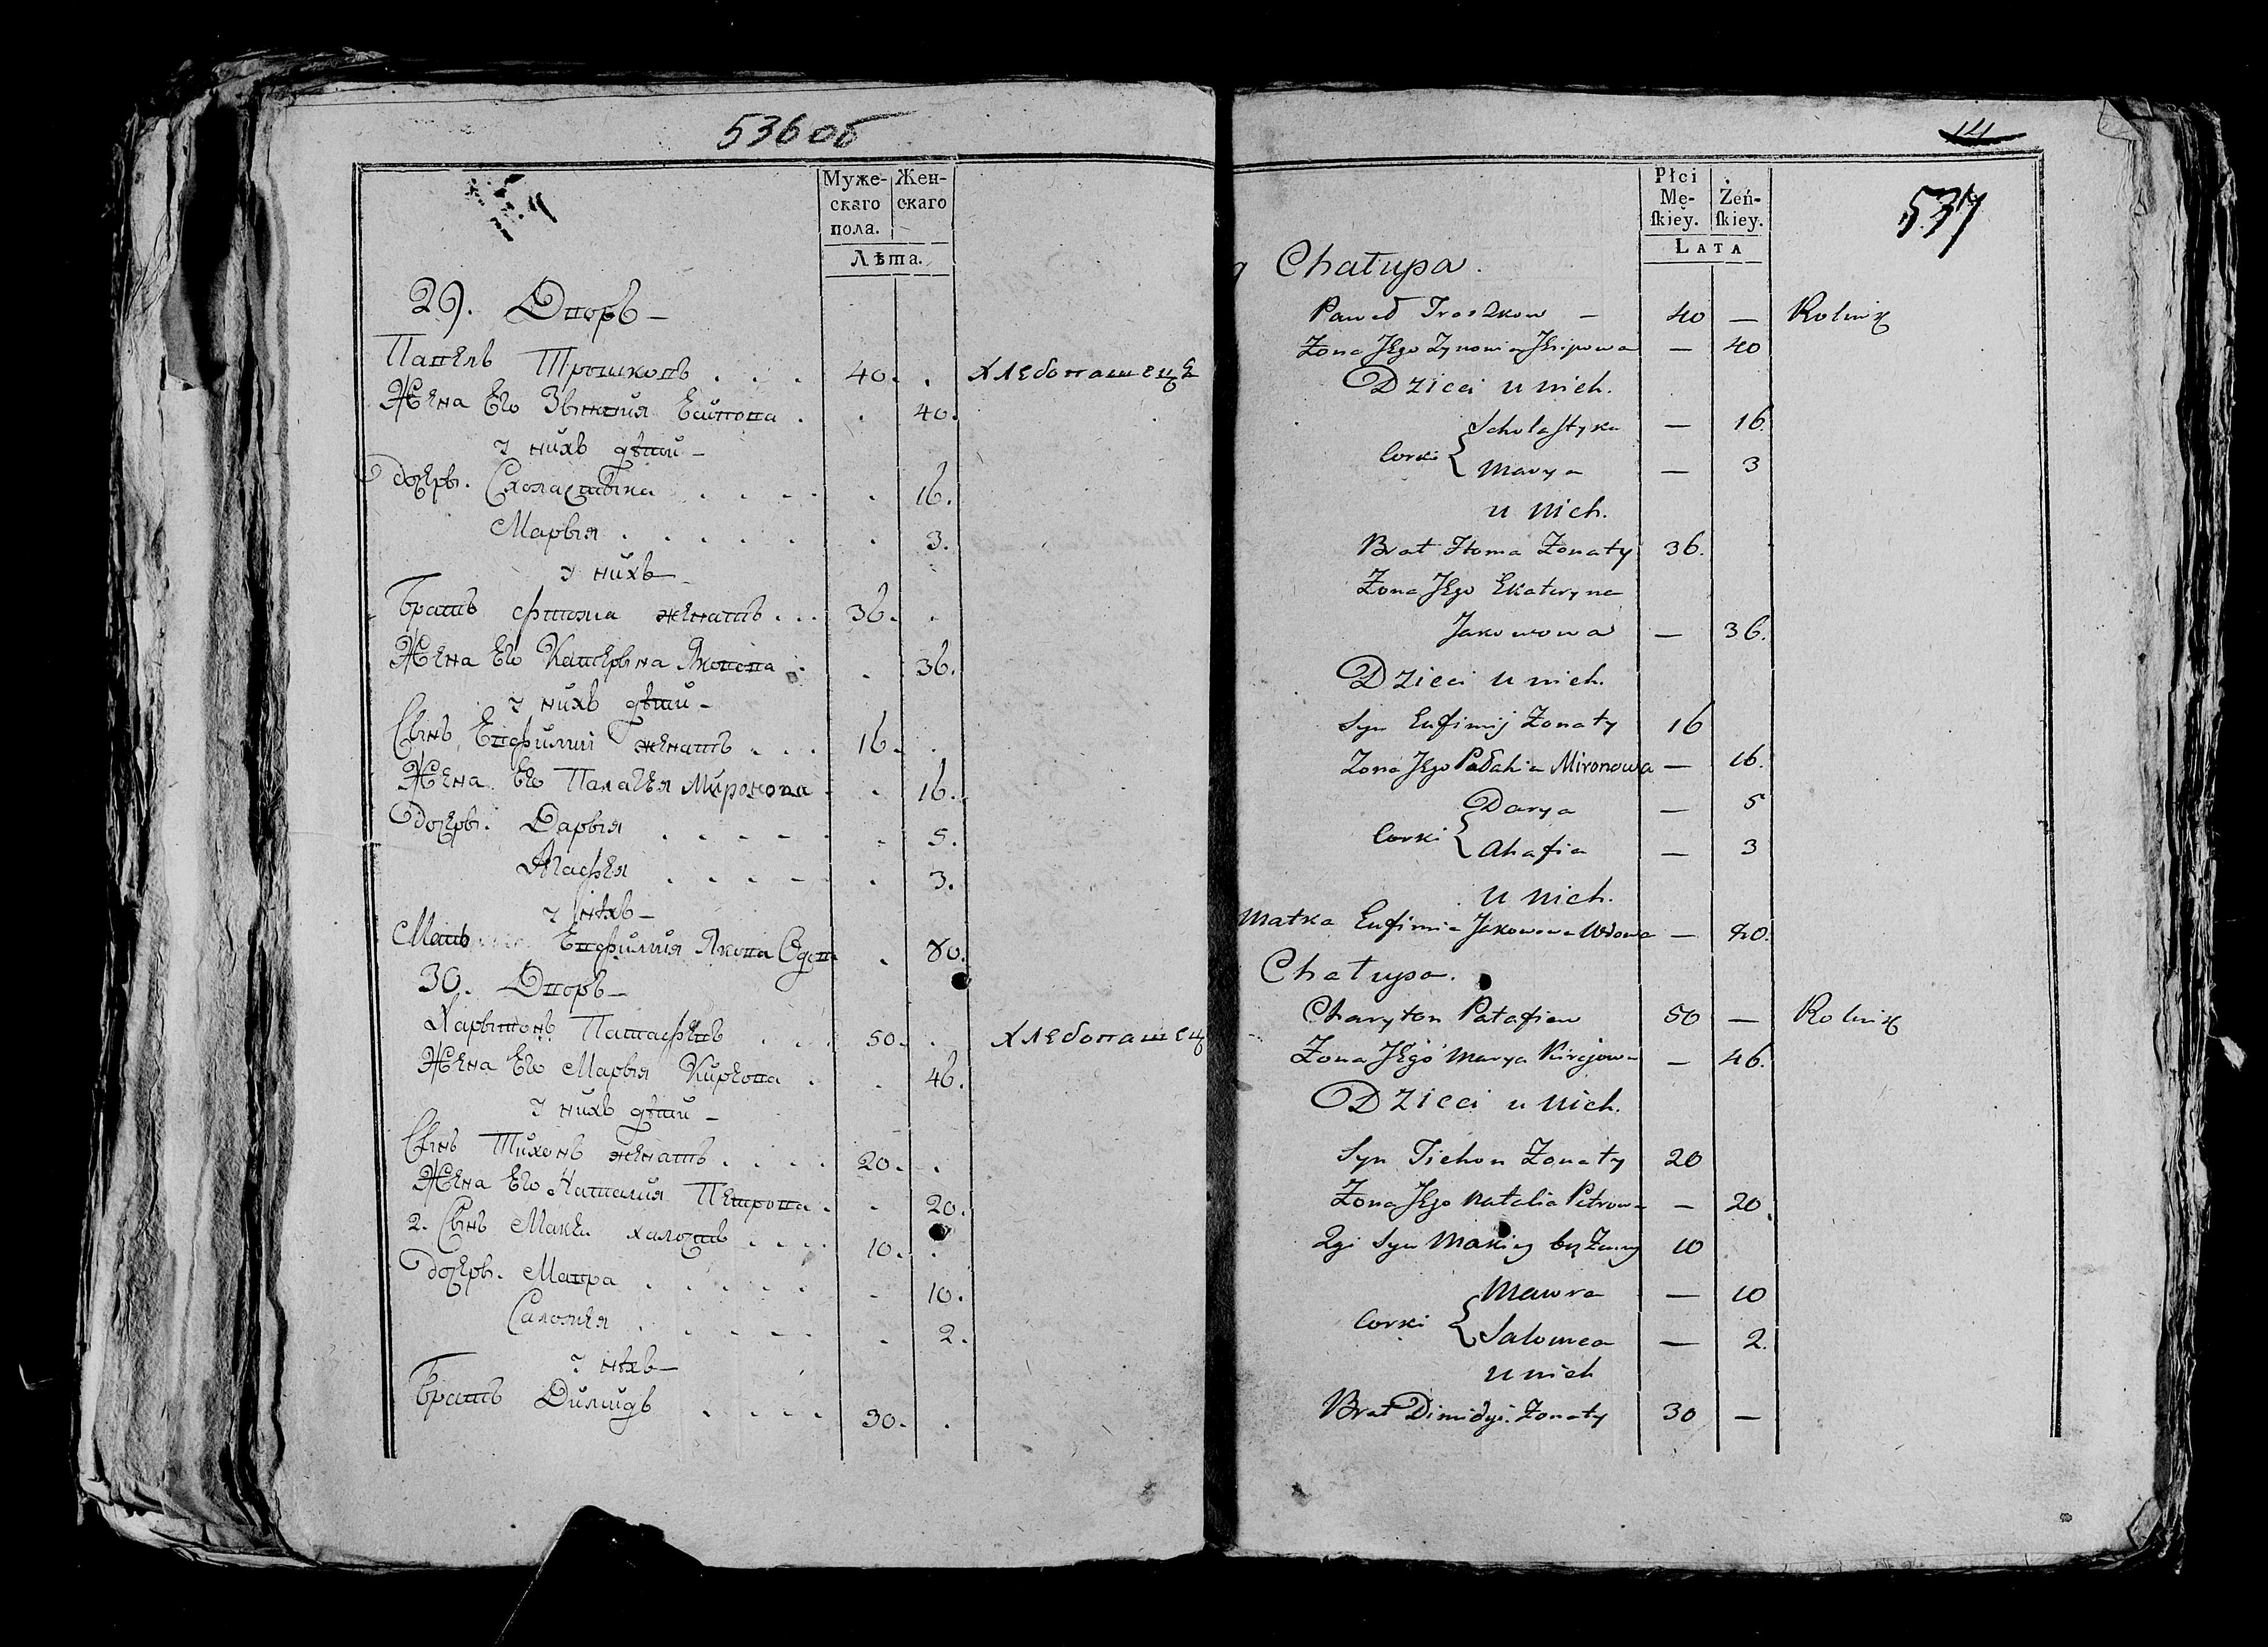 536 об
Муже-
скаго
пола.
Жен-
скаго
Лѣта.
29. Дворъ
Павелъ Трошковъ . . . 40. . хлебопашецъ
Жена Его Зѣновия Есипова . . 40.
У нихъ дѣти
Дочеръ. Схоластыка . . . . . 16.
Марья . . . . . . 3.
У нихъ
Братъ Фтома женатъ . . . 36. .
Жена Его Катерына Яковова . . 36.
У нихъ дѣти
Сынъ Евфимий женатъ . . . 16. .
Жена Его Палагея Миронова . . 16.
Дочеръ. Дарья . . . . . . 5.
Агафея . . . . . 3.
У нѣхъ
Мать Евфимия Якова Вдов . 80.
30. Дворъ
Харытонъ Патафѣевъ . . 50. . хлебопашец
Жена Его Марья Кирѣова . . 46.
У нихъ дѣти
Сынъ Тихонъ женатъ . . . . 20. .
Жена Его Наталия Петрова . . 20.
2. Сынъ Макей халостъ . . . . 10. .
Дочеръ. Мавра . . . . . . 10.
Саломея . . . . . . 2.
У нѣхъ
Братъ Димидъ . . . . 30. .
14
537
Płci
Mę-
ſkiey.
Żeń-
ſkiey.
LATA
Chałupa.
Paweł Troszkow — 40 — Rolnik
Żona Jego Zynowia Jesipowa — 40
Dzieci u nich.
Corki { Scholastyka — 16.
Marya — 3
u nich.
Brat Htoma Żonaty 36.
Żona Jego Ekateryna
Jakowowa — 36.
Dzieci u nich.
Syn Eufimij Żonaty 16
Żona Jego Pałahia Mironowa — 16.
Corki { Darya — 5
Ahafia — 3
u nich.
Matka Eufimia Jakowowa Wdowa — 80.
Chałupa.
Charyton Patafiew 50 — Rolnik
Żona Jego Marya Kirejowa — 46.
Dzieci u nich.
Syn Tichon Żonaty 20
Żona Jego Natalia Petrowa — 20.
2gi Syn Makiey bez Żenny 10
Corki { Mawra — 10
Salomea — 2.
u nich
Brat Dimidyi Żonaty 30 —